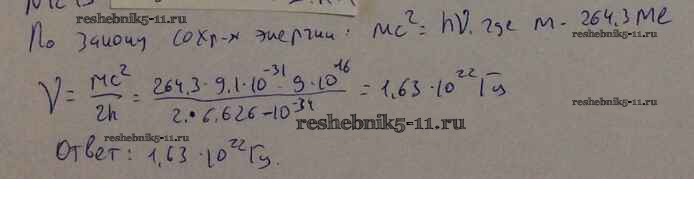 reshebnik5-11.ru
По закону сохр-я энергии: mc² = hν. где m - 264,3 me
ν = mc²/2h = 264,3 · 9,1 · 10⁻³¹ · 9 · 10¹⁶ / 2 · 6,626 - 10⁻³⁴ = 1,63 · 10²² Гц
reshebnik5-11.ru
reshebnik5-11.ru
Ответ: 1,63 · 10²² Гц.